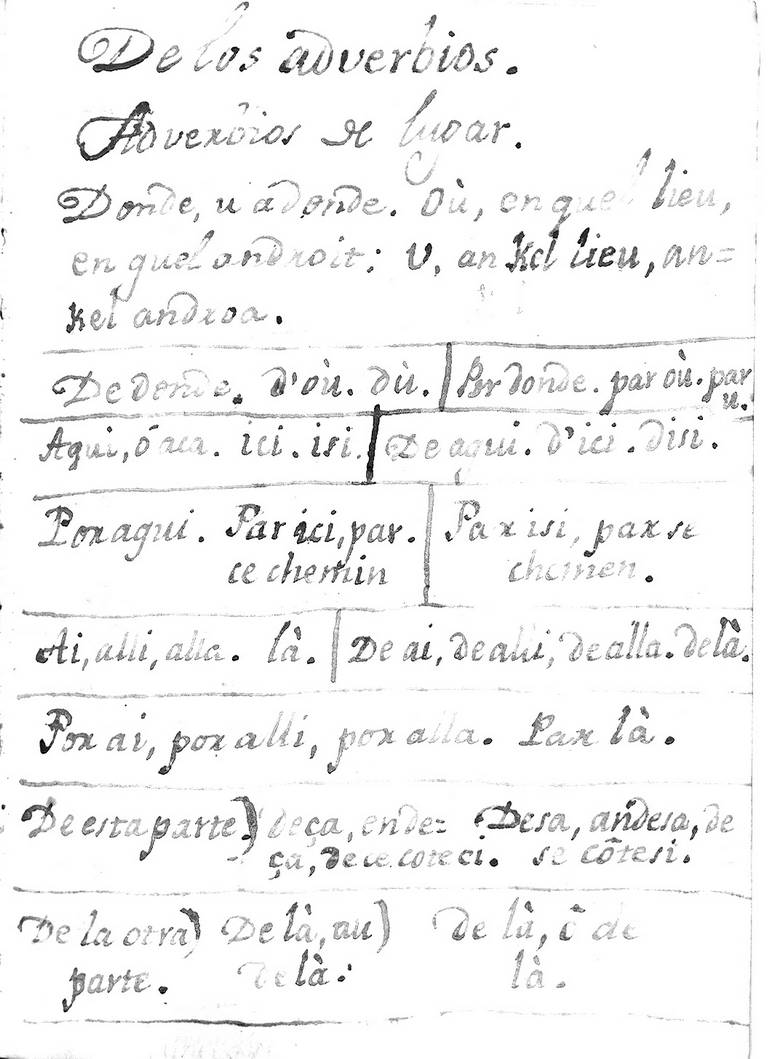 De los adverbios.
Adverbios de lugar.
Donde, u adonde. Où, en quel lieu,
en quel androit: U, an kel lieu, an=
kel androa.
De donde. d'où. dù. Por donde. par où. par
u.
Aqui, ó aca. ici. isi. De aqui. d'ici. disi.
Por aqui. Par ici, par. Par isi, par se
ce chemin chemen.
Ai, alli, alla. là. De ai, de alli, de alla. de là.
Por ai, por alli, por alla. Par là.
De esta parte.) deça, en de= Desa, an desa, de
ça, de ce coteci. se côtesi.
De la otra) De là, au) de là, ô de
parte. delà: là.